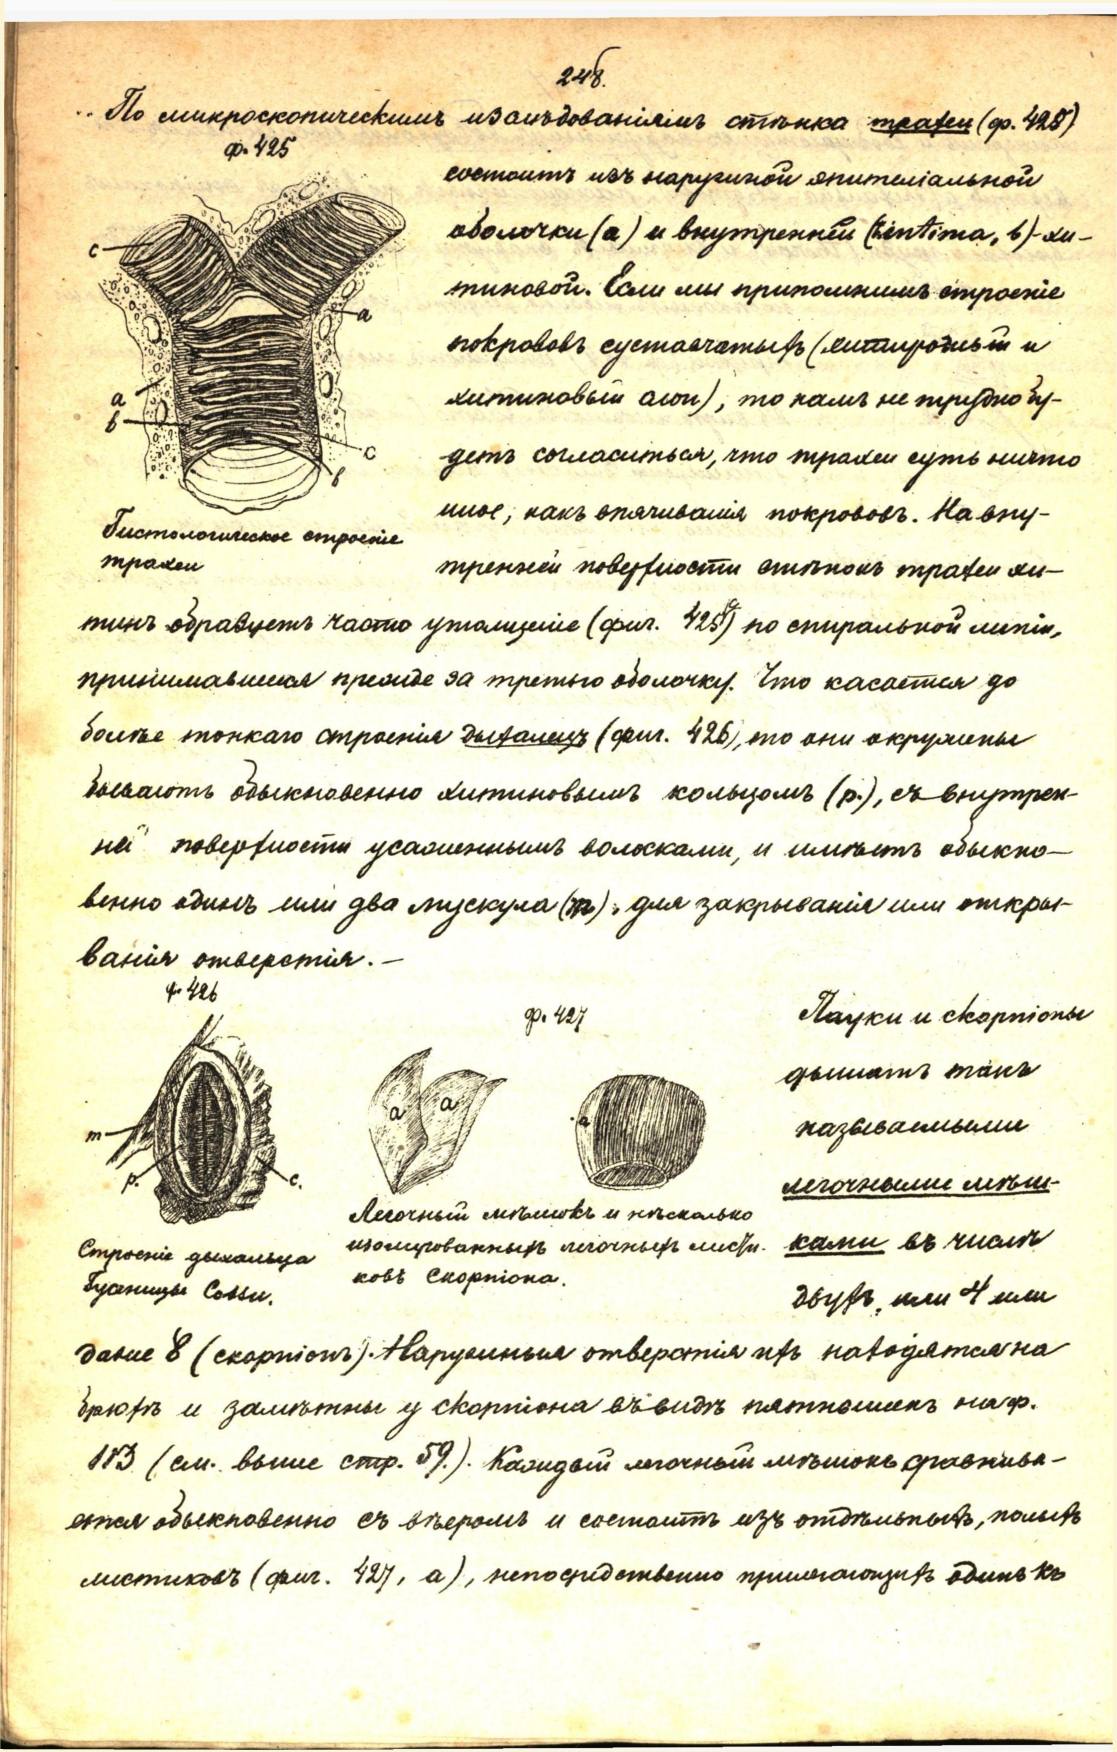 248.
По микроскопическимъ изслѣдованіямъ стѣнка трахеи (ф. 425)
ф. 425
состоитъ изъ наружной эпителіальной
оболочки (а) и внутренней (intima, в) хи-
тиновой. Если мы припомнимъ строеніе
покрововъ суставчатыхъ (хитинородный и
хитиновый слои), то намъ не трудно бу-
детъ согласиться, что трахеи суть ничто
иное, какъ впячиванія покрововъ. На вну-
тренней поверхности стѣнокъ трахеи хи-
с
а
а
в
с
в
Гистологическое строеніе
трахеи
тинъ образуетъ часто утолщеніе (фиг. 425 с) по спиральной линіи,
принимавшееся прежде за третью оболочку. Что касается до
болѣе тонкаго строенія дыхалецъ (фиг. 426), то они окружены
бываютъ обыкновенно хитиновымъ кольцомъ (р.), съ внутрен-
ней поверхности усаженнымъ волосками, и имѣетъ обыкно-
венно одинъ или два мускула (m), для закрыванія или откры-
ванія отверстія. —
ф. 426
m
р.
с.
Строеніе дыхальца
Гусеницы Совы.
ф. 427
а
а
а
Легочный мѣшокъ и нѣсколько
изолированныхъ легочныхъ листи-
ковъ Скорпіона.
Пауки и скорпіоны
дышатъ такъ
называемыми
легочными мѣш-
ками въ числѣ
двухъ, или 4 или
даже 8 (скорпіонъ). Наружныя отверстія ихъ находятся на
брюхѣ и замѣтны у скорпіона въ видѣ пятнышекъ на ф.
183 (см. выше стр. 59.). Каждый легочный мѣшокъ сравнива-
ется обыкновенно съ вѣеромъ и состоитъ изъ отдѣльныхъ, полыхъ
листиковъ (фиг. 427, а), непосредственно прилегающихъ одинъ къ